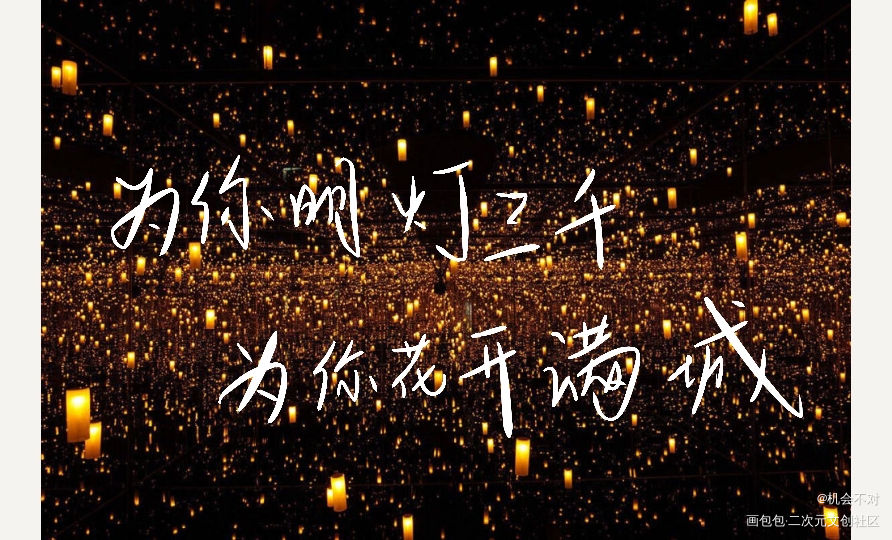 为你明灯三千
为你花开满城
@机会不对
画包包·二次元文创社区